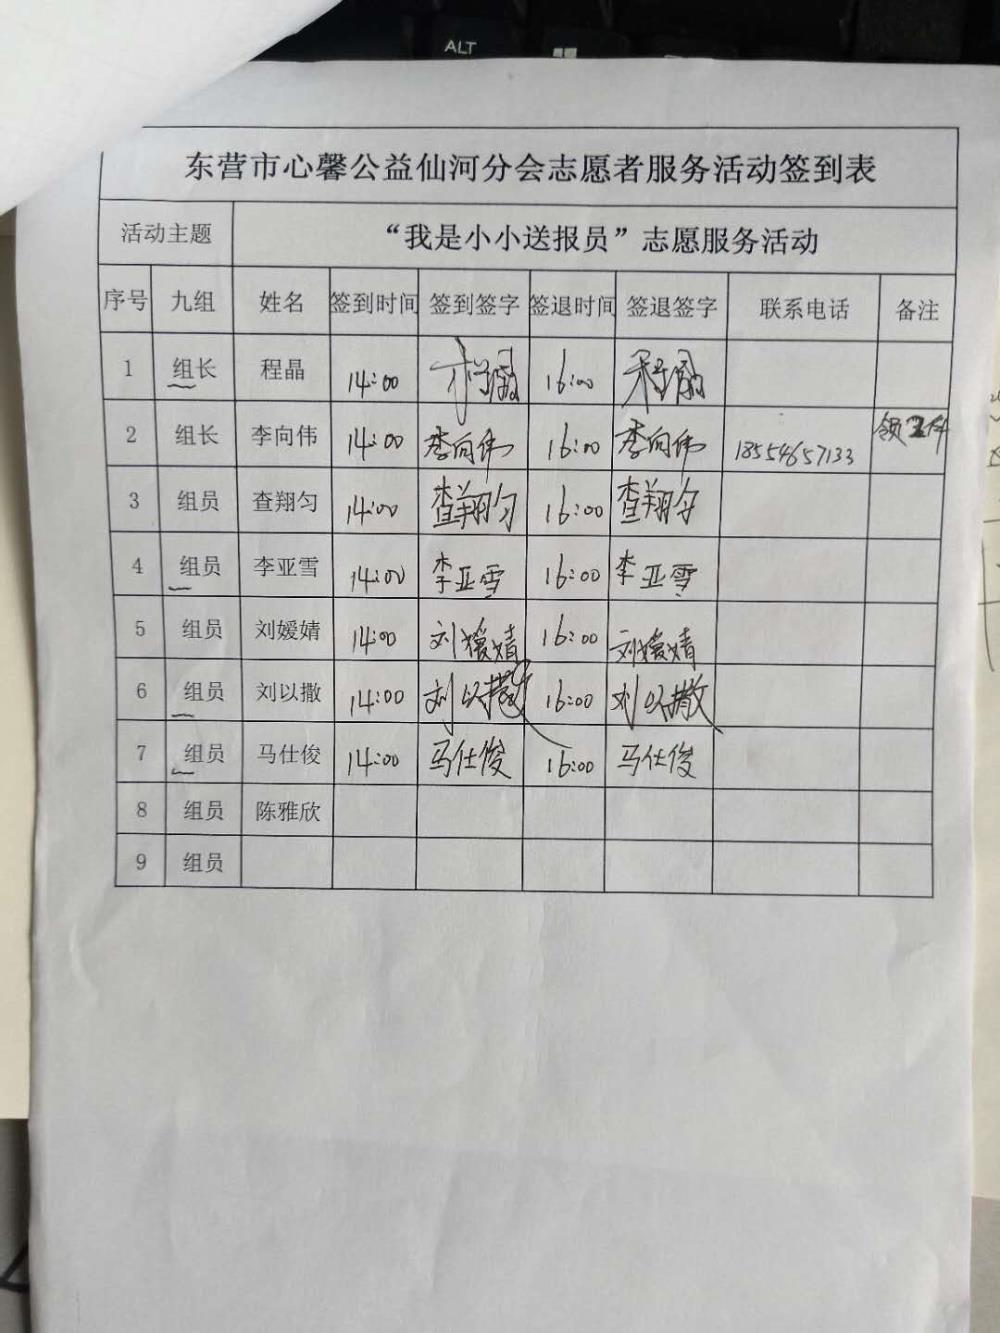 ALT
东营市心馨公益仙河分会志愿者服务活动签到表
活动主题 “我是小小送报员”志愿服务活动
序号 九组 姓名 签到时间 签到签字 签退时间 签退签字 联系电话 备注
1 组长 程晶 14:00 程晶 16:00 程晶
2 组长 李向伟 14:00 李向伟 16:00 李向伟 18554657133 领工作
3 组员 查翔匀 14:00 查翔匀 16:00 查翔匀
4 组员 李亚雪 14:00 李亚雪 16:00 李亚雪
5 组员 刘嫒婧 14:00 刘嫒婧 16:00 刘嫒婧
6 组员 刘以撒 14:00 刘以撒 16:00 刘以撒
7 组员 马仕俊 14:00 马仕俊 16:00 马仕俊
8 组员 陈雅欣
9 组员